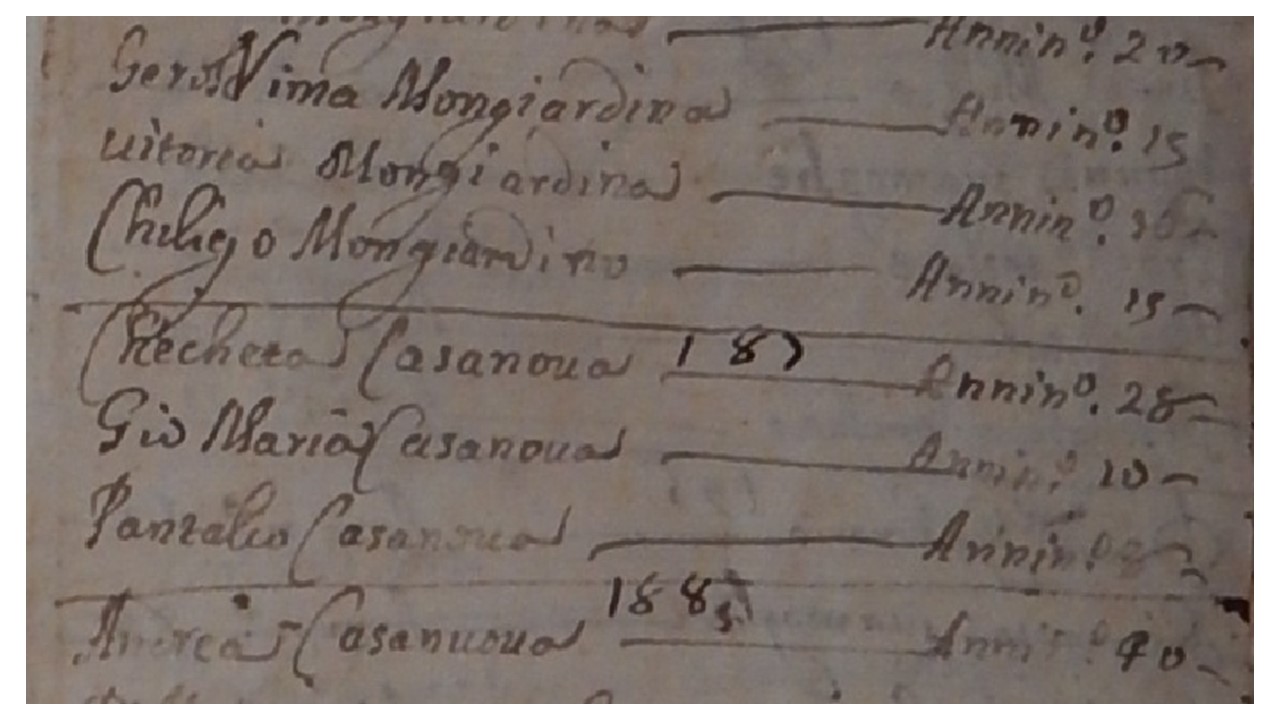 Mongiardina Annin.º 20
Geronima Mongiardina Annin.º 15
uitoria Mongiardina Annin.º
Chiligo Mongiardino Annin.º 15
Checheta Casanoua 187 Annin.º 28
Gio Maria Casanoua Annin.º 10
Pantaleo Casanoua Annin.º 8
Andrea Casanuoua 188 Annin.º 40